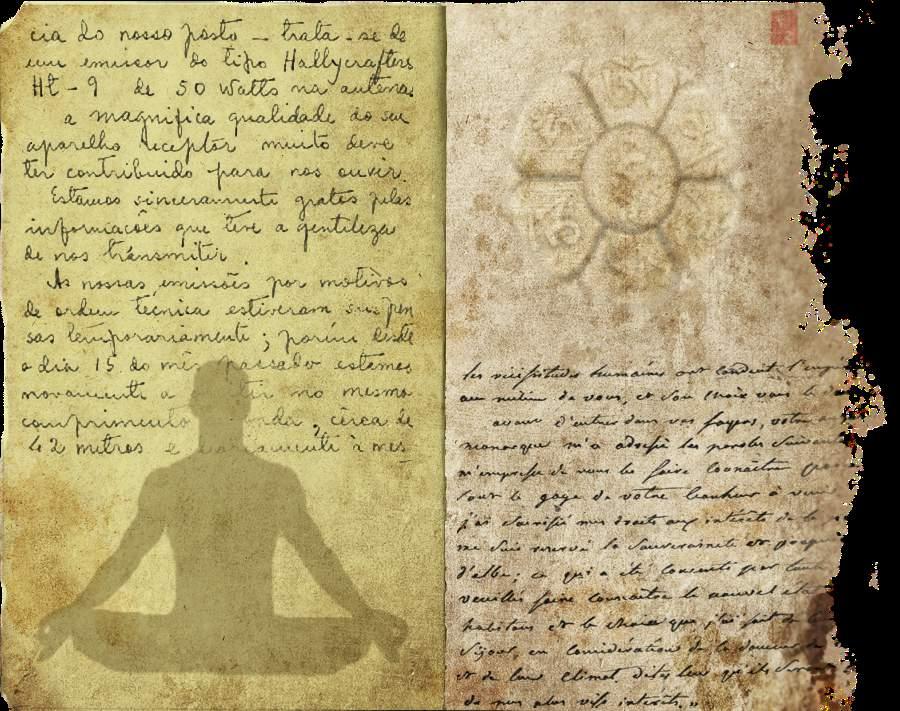 cia do nosso posto - trata-se de
um emissor do tipo Hallycrafters
Ht-9 de 50 Watts na antena.
a magnifica qualidade do seu
aparelho receptor muito deve
ter contribuido para nos ouvir.
Estamos sinceramente gratos pelas
informações que teve a gentileza
de nos transmitir.
As nossas emissões por motivos
de ordem técnica estiveram suspen
sas temporariamente; porém desde
o dia 15 do mês passado estamos
novamente a no mesmo
comprimento onda, cêrca de
42 metros e à mes
les vicissitudes humaines ont conduit
au milieu de vous, et
avant d'entrer dans vos foyers, votre
monarque m'a adressé les paroles suivantes
m'empresse de vous les faire connaître
sont le gage de votre bonheur à venir
j'ai sacrifié mes droits aux intérêts de la
me suis réservé la souveraineté et
d'elbe; ce qui a été consenti par
veuillez faire connaitre le nouvel état
habitans et le choix que j'ai fait de
séjour, en considération de la douceur
et de leur climat, dites leur qu'ils seront
de mes plus vifs intérêts."